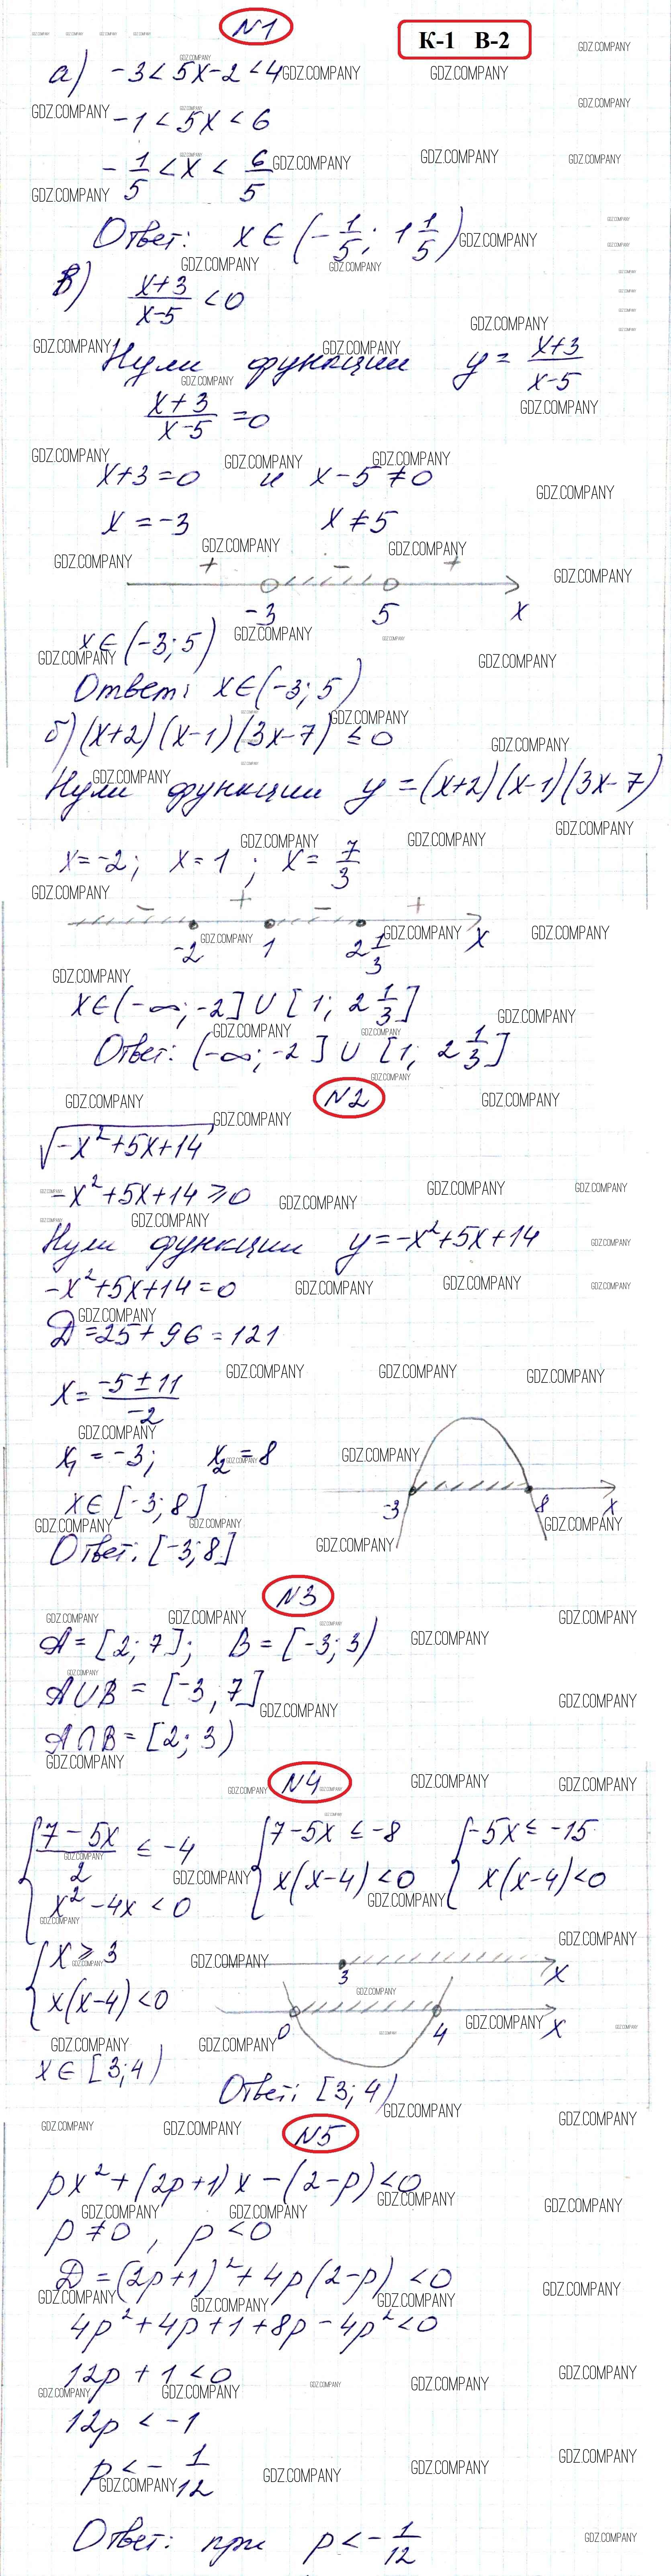 №1
К-1 В-2
а) -3 < 5x - 2 < 4
-1 < 5x < 6
-1/5 < x < 6/5
Ответ: x ∈ (-1/5; 1 1/5)
в) (x+3)/(x-5) < 0
Нули функции y = (x+3)/(x-5)
(x+3)/(x-5) = 0
x+3 = 0 и x-5 ≠ 0
x = -3 x ≠ 5
+ - +
-3 5 x
x ∈ (-3; 5)
Ответ: x ∈ (-3; 5)
б) (x+2)(x-1)(3x-7) ≤ 0
Нули функции y = (x+2)(x-1)(3x-7)
x = -2; x = 1; x = 7/3
- + - +
-2 1 2 1/3 x
x ∈ (-∞; -2] ∪ [1; 2 1/3]
Ответ: (-∞; -2] ∪ [1; 2 1/3]
№2
√(-x²+5x+14)
-x²+5x+14 ≥ 0
Нули функции y = -x²+5x+14
-x²+5x+14 = 0
Д = 25 + 96 = 121
x = (-5 ± 11)/-2
x₁ = -3; x₂ = 8
-3 8 x
x ∈ [-3; 8]
Ответ: [-3; 8]
№3
A = [2; 7]; B = [-3; 3)
A∪B = [-3, 7]
A∩B = [2; 3)
№4
{ (7-5x)/2 ≤ -4 { 7-5x ≤ -8 { -5x ≤ -15
x²-4x < 0 x(x-4) < 0 x(x-4) < 0
{ x ≥ 3
3 x
x(x-4) < 0
0 4 x
x ∈ [3; 4)
Ответ: [3; 4)
№5
px² + (2p+1)x - (2-p) < 0
p ≠ 0, p < 0
Д = (2p+1)² + 4p(2-p) < 0
4p² + 4p + 1 + 8p - 4p² < 0
12p + 1 < 0
12p < -1
p < -1/12
Ответ: при p < -1/12
GDZ.COMPANY